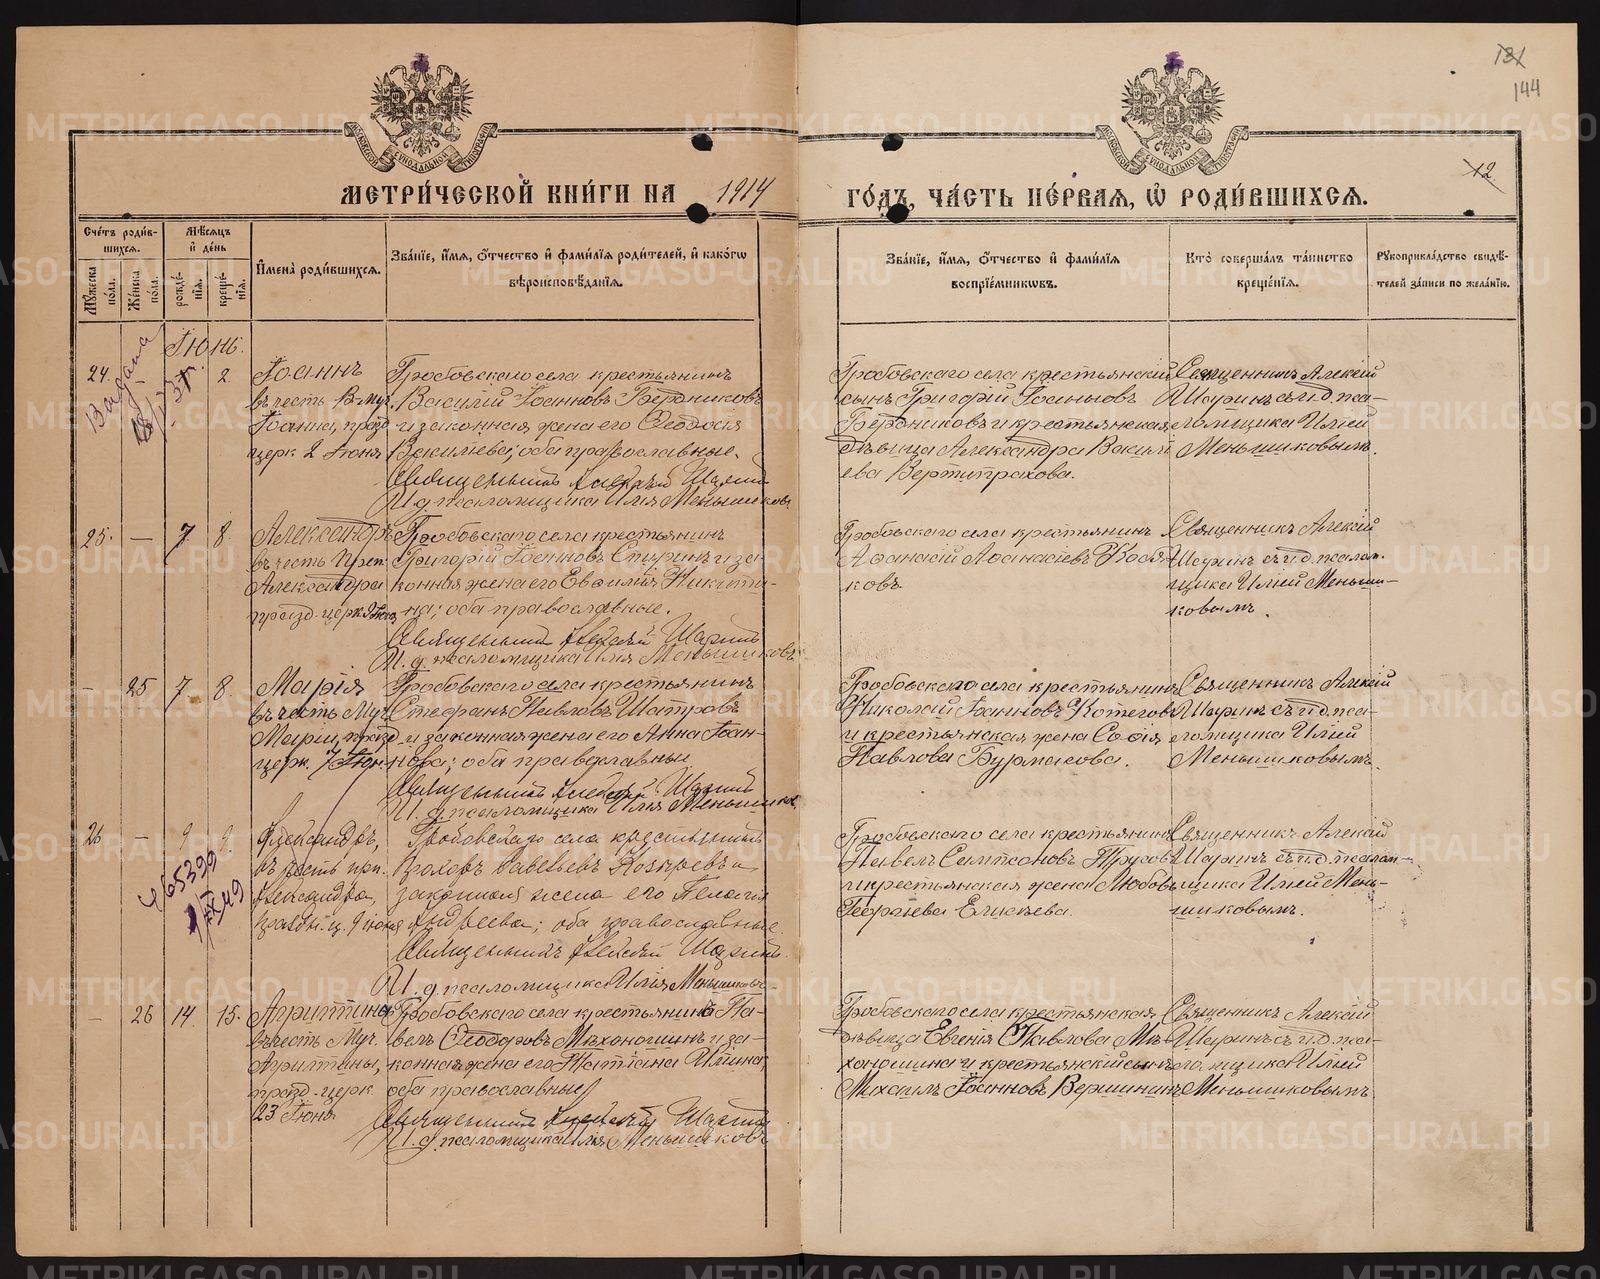 131
144
12
МЕТРИ́ЧЕСКОЙ КНИ́ГИ НА 1914
ГО́ДЪ, ЧА́СТЬ ПЕ́РВАЯ, Ѿ РОДИ́ВШИХСЯ.
Сче́тъ роди́в-
шихся.
Мѣ́сяцъ
и҆ де́нь
Мꙋ́жеска
по́ла.
Же́нска
по́ла.
рожде́-
нїѧ.
креще́-
нїѧ.
И҆мена̀ роди́вшихся.
Зва́нїе, и҆́мя, ѻ҆́тчество и҆ фами́лїя роди́телей, и҆ како́гѡ
вѣроисповѣ́данїѧ.
Зва́нїе, и҆́мя, ѻ҆́тчество и҆ фами́лїя
воспрїе́мникѡвъ.
Кто̀ соверша́лъ та́инство
креще́нїѧ.
Рꙋкоприкла́дство свидѣ́-
телей за́писи по жела́нїю.
Іюнь.
24. 2
Іоаннъ
въ честь В-муч.
Іоанна, празд.
церк 2 Іюня
Гробовскаго села крестьянинъ
Василій Іоанновъ Бердниковъ
и законная жена его Ѳеодосія
Васильева; оба православные.
Священникъ Алексѣй Шаринъ
И. д. псаломщика Илія Меньшиковъ
Гробовскаго села крестьянскій
сынъ Григорій Іоанновъ
Бердниковъ и крестьянская
дѣвица Александра Васили-
ева Вертипрахова.
Священникъ Алексій
Шаринъ съ и. д. пса-
ломщика Иліей
Меньшиковымъ.
25. — 7 8.
Александръ
въ честь Преп.
Александра
празд. церк. 9 Іюня
Гробовскаго села крестьянинъ
Григорій Іоанновъ Стуринъ и за-
конная жена его Евфимія Никити-
на; оба православные.
Священникъ Алексѣй Шаринъ
И. д. псаломщика Илія Меньшиковъ
Гробовскаго села крестьянинъ
Аѳанасій Аѳанасіевъ
ковъ
Священникъ Алексій
Шаринъ съ и. д. псалом-
щика Иліей Меньши-
ковымъ.
— 25 7. 8.
Марія
въ честь Муч.
Маріи, празд.
церк. 7 Іюня
Гробовскаго села крестьянинъ
Стефанъ Павловъ Шатровъ
и законная жена его Анна Іоан-
нова; оба православные
Священникъ Алексѣй Шаринъ
И. д. псаломщика Илія Меньшиковъ
Гробовскаго села крестьянинъ
Николай Іоанновъ Котеговъ
и крестьянская жена Софія
Павлова Бурмакова.
Священникъ Алексій
Шаринъ съ и. д. пса-
ломщика Иліей
Меньшиковымъ.
26 — 9 9.
Александръ,
въ честь пр.
Александра,
праздн. ц. 9 іюня
Гробовскаго села крестьянинъ
законная жена его Пелагія
Андреева; оба православные.
Священникъ Алексѣй Шаринъ.
И. д. псаломщика Илія Меньшиковъ
Гробовскаго села крестьянинъ
Павелъ Сампсоновъ Трусовъ
и крестьянская жена Любовь
Георгіева Елисѣева.
Священникъ Алексій
Шаринъ съ и. д. псалом-
щика Иліей Мень-
шиковымъ.
— 26 14. 15.
Агриппина
въ честь Муч.
Агриппины,
празд. церк.
23 Іюня
Гробовскаго села крестьянинъ Па-
велъ Ѳеодоровъ Мѣхоношинъ и за-
конная жена его Татіана Ильина;
оба православные
Священникъ Алексѣй Шаринъ
И. д. псаломщика Илія Меньшиковъ
Гробовскаго села крестьянская
дѣвица Евгенія Павлова Мѣ-
хоношина и крестьянскій сынъ
Михаилъ Іоанновъ Вершининъ
Священникъ Алексій
Шаринъ съ и. д. пса-
ломщика Иліей
Меньшиковымъ